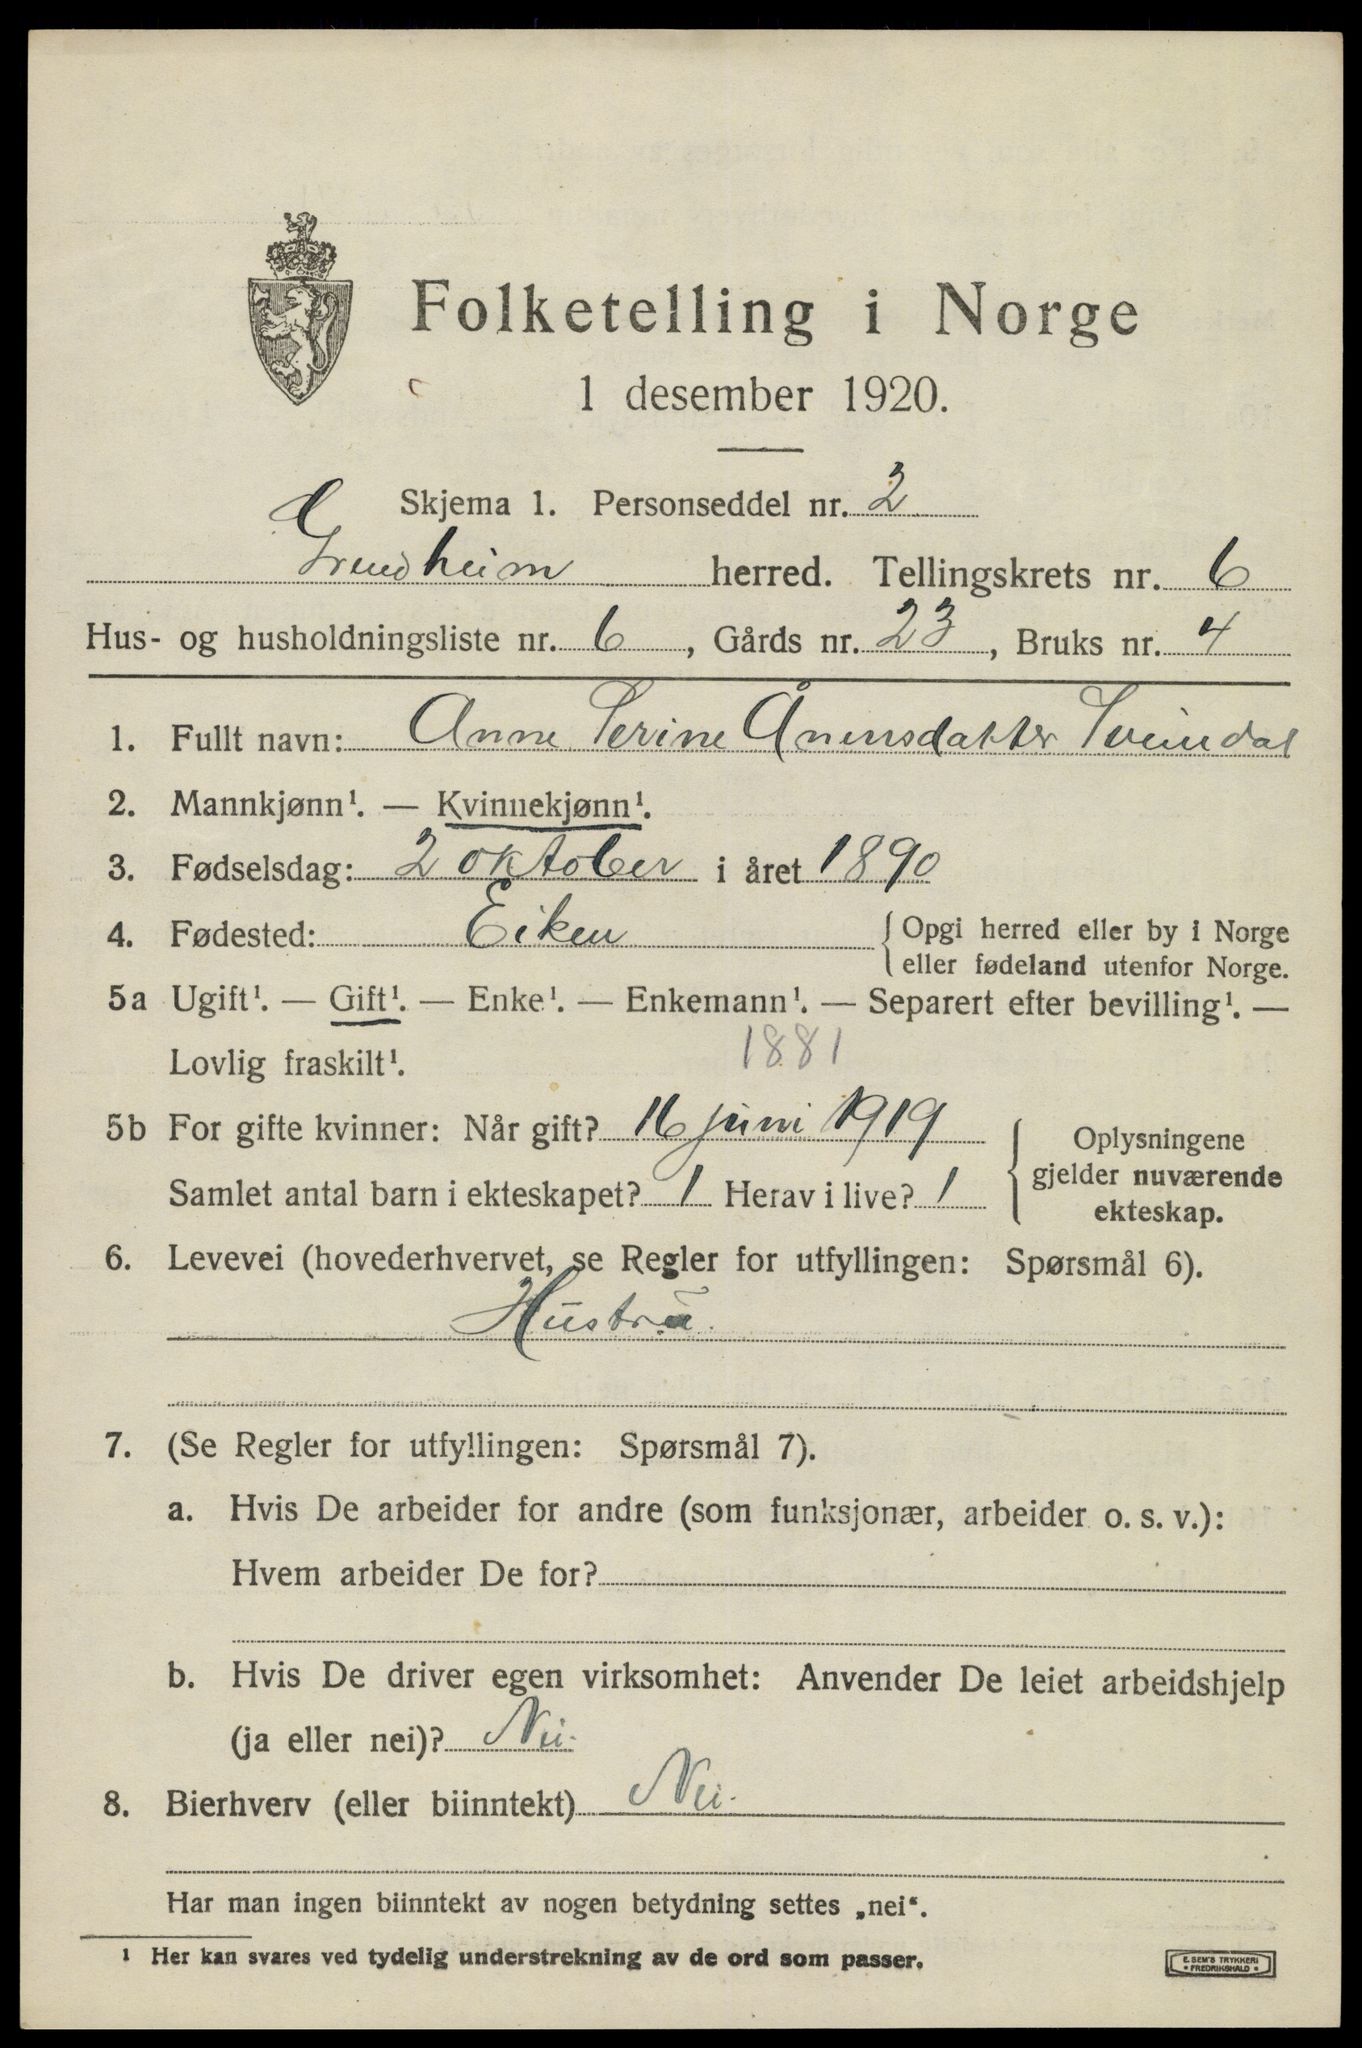 Folketelling i Norge
1 desember 1920.
Skjema 1. Personseddel nr. 2
Grindheim herred. Tellingskrets nr. 6
Hus- og husholdningsliste nr. 6, Gårds nr. 23, Bruks nr. 4
1. Fullt navn: Anne Serine Ånensdatter Sveindal
2. Mannkjønn¹. — Kvinnekjønn¹.
3. Fødselsdag: 2 oktober i året 1890
4. Fødested: Eiken {Opgi herred eller by i Norge
eller fødeland utenfor Norge.
5a Ugift¹. — Gift¹. — Enke¹. — Enkemann¹. — Separert efter bevilling¹. —
Lovlig fraskilt¹. 1881
5b For gifte kvinner: Når gift? 16 juni 1919
Samlet antal barn i ekteskapet? 1 Herav i live? 1
{Oplysningene
gjelder nuværende
ekteskap.
6. Levevei (hovederhvervet, se Regler for utfyllingen: Spørsmål 6).
Hustru
7. (Se Regler for utfyllingen: Spørsmål 7).
a. Hvis De arbeider for andre (som funksjonær, arbeider o. s. v.):
Hvem arbeider De for?
b. Hvis De driver egen virksomhet: Anvender De leiet arbeidshjelp
(ja eller nei)? Nei.
8. Bierhverv (eller biinntekt) Nei.
Har man ingen biinntekt av nogen betydning settes „nei“.
¹ Her kan svares ved tydelig understrekning av de ord som passer.
E. SEM'S TRYKKERI
* FREDRIKSHALD *